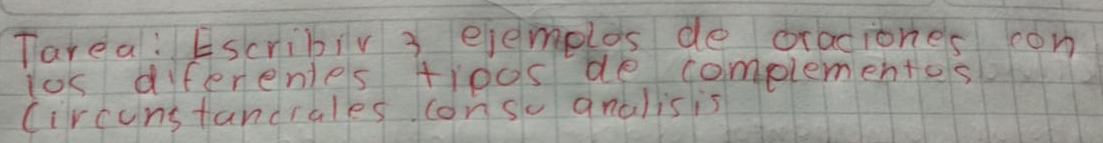 Tarea: Escribir 3 ejemplos de oraciones con
los diferentes tipos de complementos
Circunstanciales. con su analisis